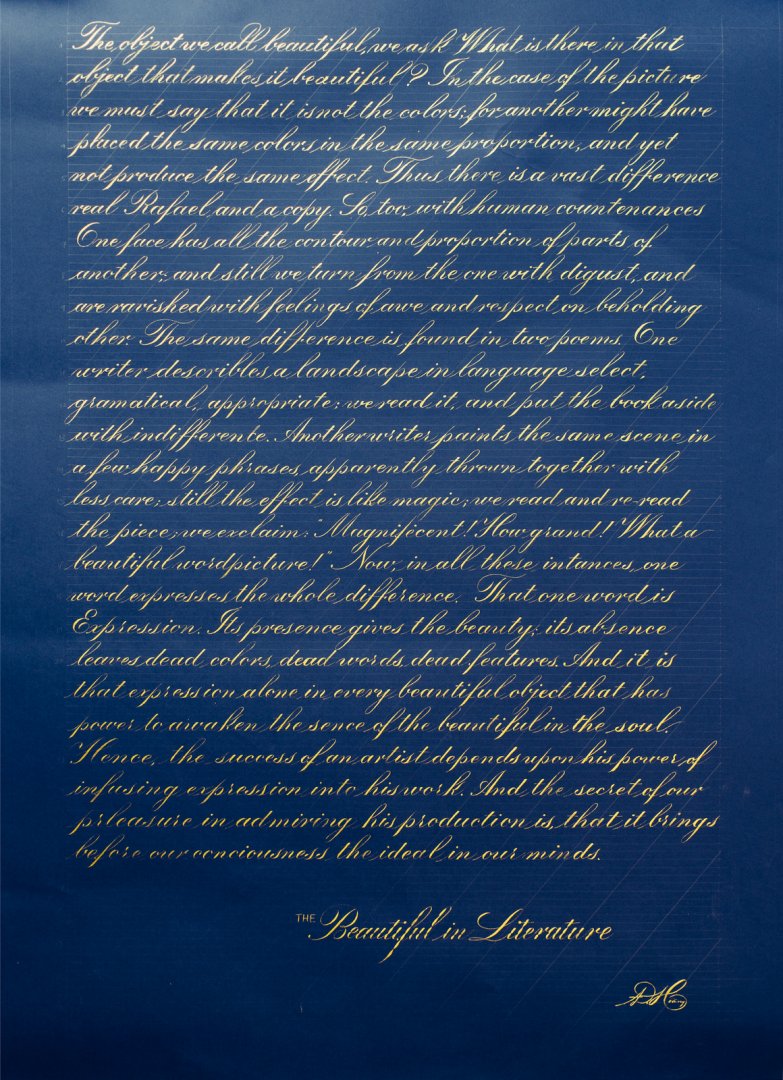 The object we call beautiful, we ask What is there in that
object that makes it beautiful? In the case of the picture
we must say that it is not the colors; for another might have
placed the same colors, in the same proportion, and yet
not produce the same effect. Thus there is a vast difference
real Rafael and a copy. So, too, with human countenances
One face has all the contour and proportion of parts of
another; and still we turn from the one with digust, and
are ravished with feelings of awe and respect on beholding
other. The same difference is found in two poems. One
writer describles a landscape in language select,
gramatical, appropriate: we read it, and put the book aside
with indifferente. Another writer paints the same scene in
a few happy phrases, apparently thrown together with
less care; still the effect is like magic; we read and re-read
the piece; we exclaim: "Magnificent! How grand! What a
beautiful wordpicture!" Now, in all these intances, one
word expresses the whole difference. That one word is
Expression. Its presence gives the beauty; its absence
leaves dead colors, dead words, dead features. And it is
that expression alone in every beautiful object that has
power to awaken the sence of the beautiful in the soul.
Hence, the success of an artist depends upon his power of
infusing expression into his work. And the secret of our
prleasure in admiring his production is, that it brings
before our conciousness the ideal in our minds.
THE Beautiful in Literature